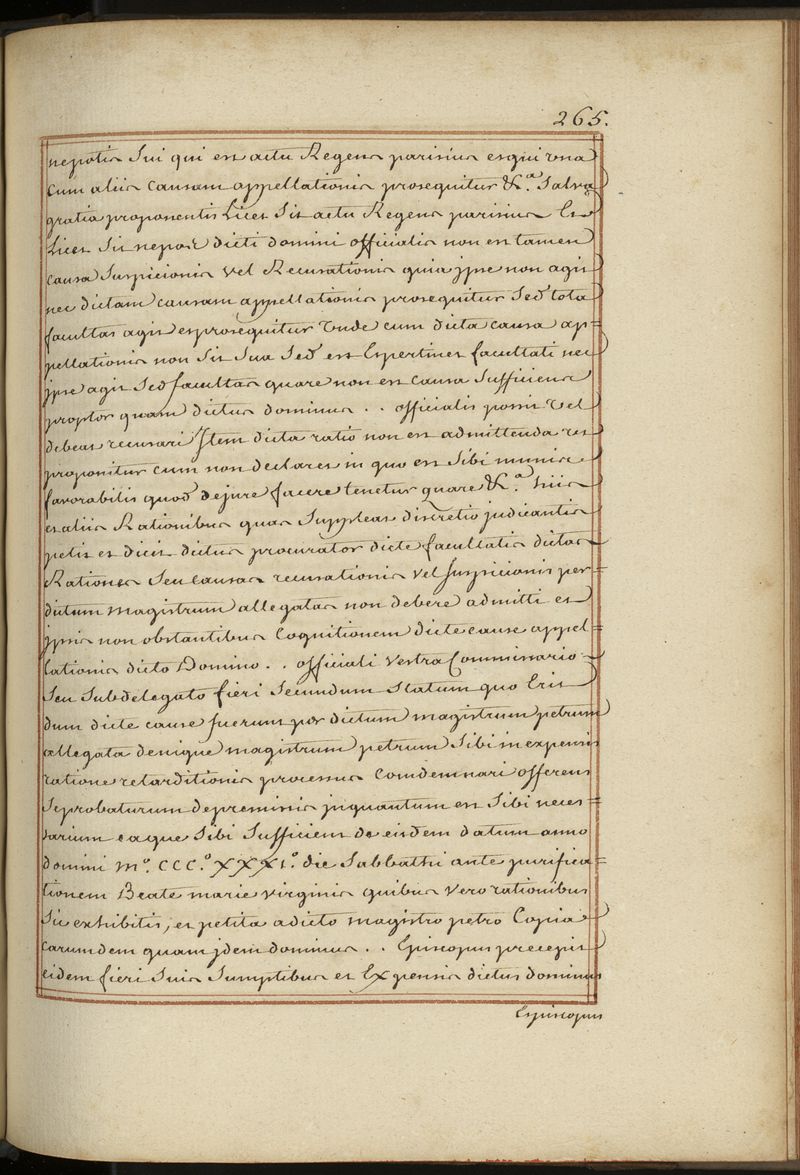 265.
nepotis Sui qui est actu Regens parisius et qui una
Cum aliis Causam appellationis prosequitur &c.ª Salva
gratia proponentis Licet Sit actu Regens parisius Et
Licet Sit nepos dicti domini officialis non est tamen
causa Suspicionis vel Recusationis quia jpse non agit
nec dictam causam appellationis prosequitur Sed tota
facultas agit et prosequitur Unde cum dicta causa ap=
pellationis non Sit Sua Sed est Et pertinet facultati nec
jpse agit Sed facultas quare non est causa Sufficiens
propter quam dictus dominus . . officialis possit vel
debeat recusari Jtem dicta ratio non est admittenda ut
proponitur cum non declaret in quo est Sibi nimis
favorabilis quod dejure facere tenetur quare &c.ª hiis
et aliis Rationibus quas Suppleat discretio judicantis
petit et dicit dictus procurator dicte facultatis dictas
Rationes Seu causas recusationis vel Suspicionis per
dictum magistrum allegatas non debere admitti et
jpsis non obstantibus Cognitionem dicte cause appel=
lationis dicto Domino . . officiali vestra Commissario
Seu Subdelegato fieri Secundum Statum quo Eris
dum dicte cause fuerunt per dictum magistrum petrum
allegata denique magistrum petrum Sibi in expensis
ratione retarditionis processus Comdemnari offerens
Se probaturum de premissis jnquantum est Sibi neces=
sarium eaque Sibi Sufficient de eisdem datum anno
domini m.º CCC.º XXXI.º die Sabbathi ante purifica=
tionem Beate marie virginis quibus vero rationibus
Sic exhibitis, et petita a dicto magistro petro Copia
earumdem quam jdem dominus . . Episcopus precepit
eidem fieri Suis Sumptibus et Expensis dictus dominus
Episcopus